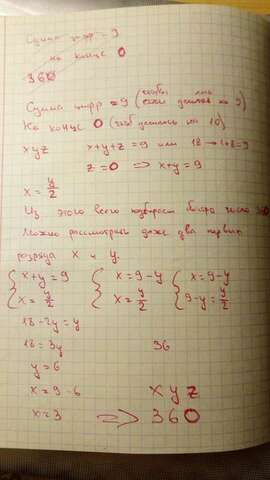 Сумма цифр = 9
на конце 0
360
Сумма цифр = 9 (чтобы
если делится на 9)
На конце 0 (чтоб делилось на 10)
xyz x+y+z=9 или 18 → 1+8=9
z=0 ⇒ x+y=9
x = y/2
Из этого всего подбираем было число 360
Можно рассмотреть даже два первых
разряда x и y.
{ x+y=9 { x=9-y { x=9-y
{ x=y/2 { x=y/2 { 9-y=y/2
18-2y=y
18=3y 36
y=6
x=9-6 xyz
x=3 ⇒ 360